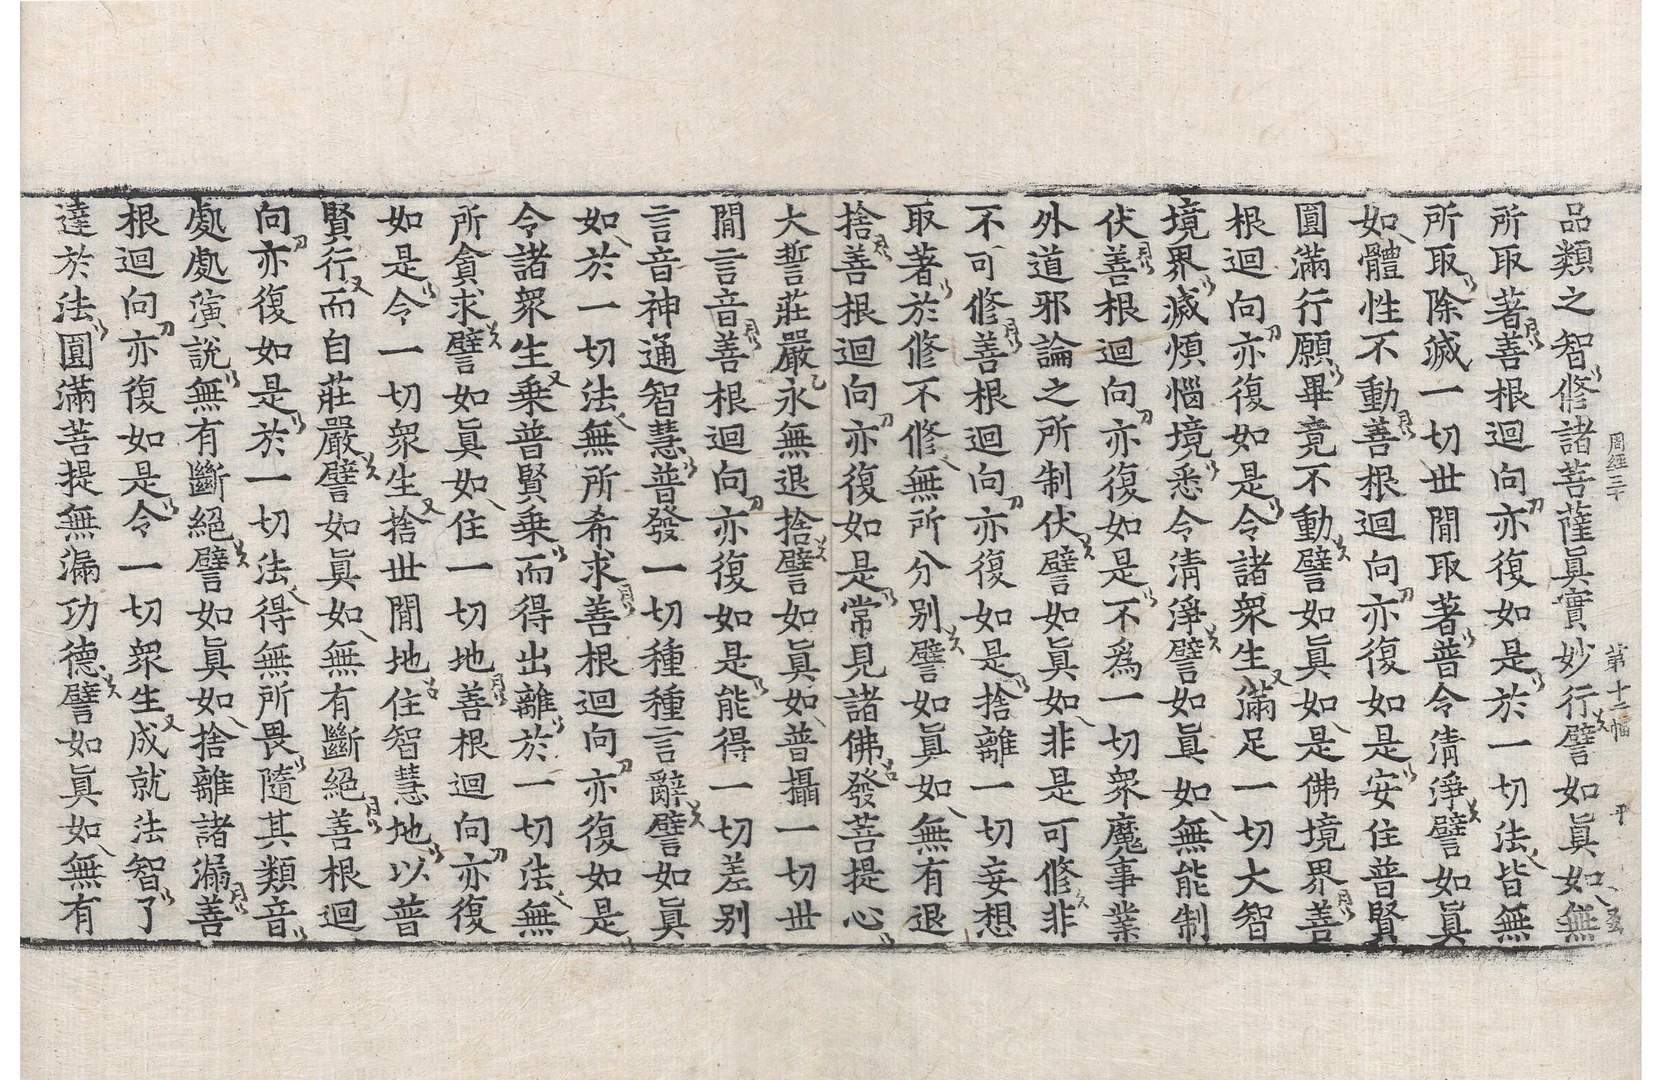 周經三十 第十二幅 平
品類之智修諸菩薩真實妙行譬如眞如無
所取著善根迴向亦復如是於一切法皆無
所取除滅一切世間取著普令清淨譬如眞
如體性不動善根迴向亦復如是安住普賢
圓滿行願畢竟不動譬如眞如是佛境界善
根迴向亦復如是令諸眾生滿足一切大智
境界滅煩惱境悉令清淨譬如眞如無能制
伏善根迴向亦復如是不為一切眾魔事業
外道邪論之所制伏譬如眞如非是可修非
不可修善根迴向亦復如是捨離一切妄想
取著於修不修無所分別譬如眞如無有退
捨善根迴向亦復如是常見諸佛發菩提心
大誓莊嚴永無退捨譬如眞如普攝一切世
間言音善根迴向亦復如是能得一切差別
言音神通智慧普發一切種種言辭譬如眞
如於一切法無所希求善根迴向亦復如是
令諸眾生乘普賢乘而得出離於一切法無
所貪求譬如眞如住一切地善根迴向亦復
如是令一切眾生捨世間地住智慧地以普
賢行而自莊嚴譬如眞如無有斷絕善根迴
向亦復如是於一切法得無所畏隨其類音
處處演說無有斷絕譬如眞如捨離諸漏善
根迴向亦復如是令一切眾生成就法智了
達於法圓滿菩提無漏功德譬如眞如無有